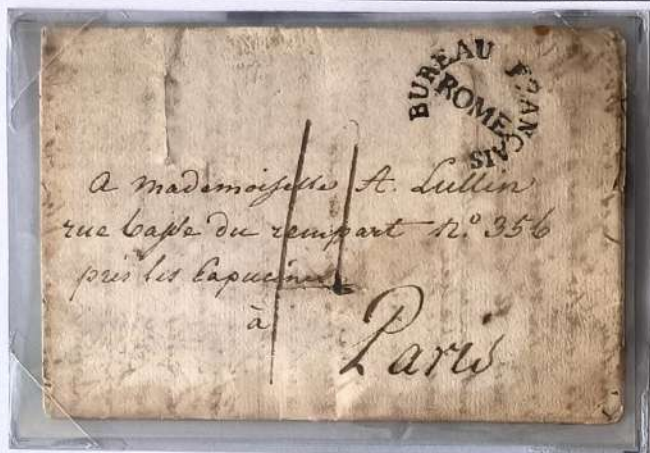 BUREAU FRANÇAIS
ROME
A mademoiselle A. Lullin
rue basse du rempart n.º 356
près les Capucines
à
Paris